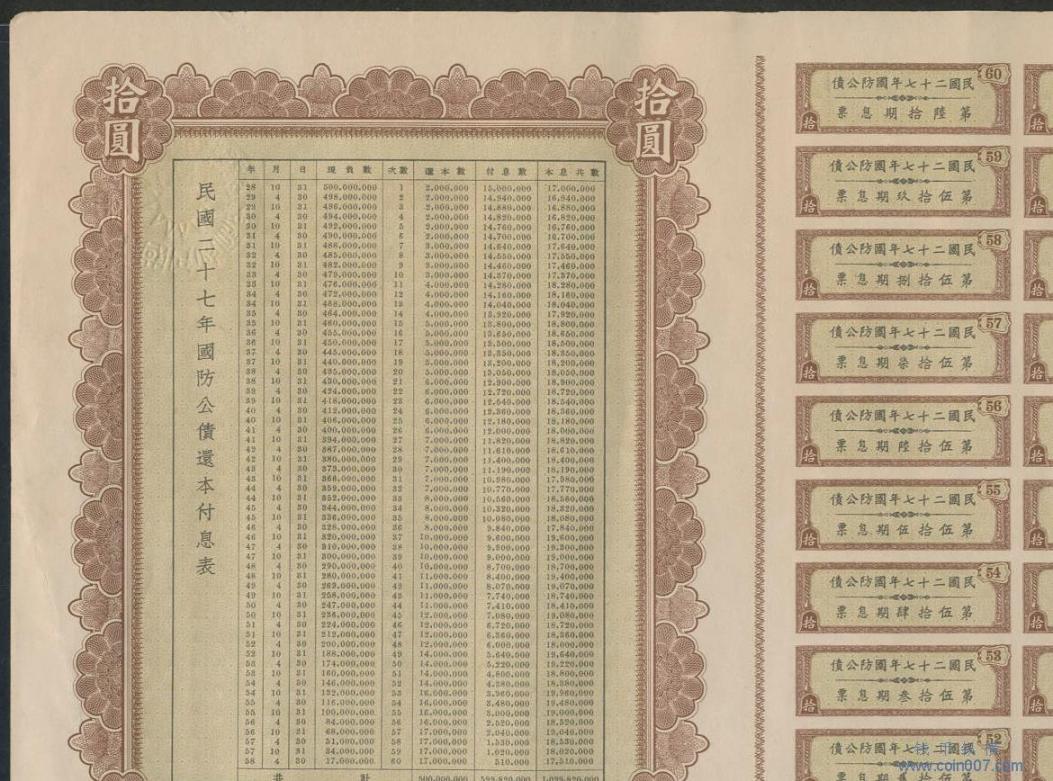 拾圓
拾圓
民國二十七年國防公債還本付息表
年 月 日 現負數 次數 還本數 付息數 本息共數
28 10 31 500,000,000 1 2,000,000 15,000,000 17,000,000
29 4 30 498,000,000 2 2,000,000 14,940,000 16,940,000
29 10 31 496,000,000 3 2,000,000 14,880,000 16,880,000
30 4 30 494,000,000 4 2,000,000 14,820,000 16,820,000
30 10 31 492,000,000 5 2,000,000 14,760,000 16,760,000
31 4 30 490,000,000 6 2,000,000 14,700,000 16,700,000
31 10 31 488,000,000 7 3,000,000 14,640,000 17,640,000
32 4 30 485,000,000 8 3,000,000 14,550,000 17,550,000
32 10 31 482,000,000 9 3,000,000 14,460,000 17,460,000
33 4 30 479,000,000 10 3,000,000 14,370,000 17,370,000
33 10 31 476,000,000 11 4,000,000 14,280,000 18,280,000
34 4 30 472,000,000 12 4,000,000 14,160,000 18,160,000
34 10 31 468,000,000 13 4,000,000 14,040,000 18,040,000
35 4 30 464,000,000 14 4,000,000 13,920,000 17,920,000
35 10 31 460,000,000 15 5,000,000 13,800,000 18,800,000
36 4 30 455,000,000 16 5,000,000 13,650,000 18,650,000
36 10 31 450,000,000 17 5,000,000 13,500,000 18,500,000
37 4 30 445,000,000 18 5,000,000 13,350,000 18,350,000
37 10 31 440,000,000 19 5,000,000 13,200,000 18,200,000
38 4 30 435,000,000 20 5,000,000 13,050,000 18,050,000
38 10 31 430,000,000 21 6,000,000 12,900,000 18,900,000
39 4 30 424,000,000 22 6,000,000 12,720,000 18,720,000
39 10 31 418,000,000 23 6,000,000 12,540,000 18,540,000
40 4 30 412,000,000 24 6,000,000 12,360,000 18,360,000
40 10 31 406,000,000 25 6,000,000 12,180,000 18,180,000
41 4 30 400,000,000 26 6,000,000 12,000,000 18,000,000
41 10 31 394,000,000 27 7,000,000 11,820,000 18,820,000
42 4 30 387,000,000 28 7,000,000 11,610,000 18,610,000
42 10 31 380,000,000 29 7,000,000 11,400,000 18,400,000
43 4 30 373,000,000 30 7,000,000 11,190,000 18,190,000
43 10 31 366,000,000 31 7,000,000 10,980,000 17,980,000
44 4 30 359,000,000 32 7,000,000 10,770,000 17,770,000
44 10 31 352,000,000 33 8,000,000 10,560,000 18,560,000
45 4 30 344,000,000 34 8,000,000 10,320,000 18,320,000
45 10 31 336,000,000 35 8,000,000 10,080,000 18,080,000
46 4 30 328,000,000 36 8,000,000 9,840,000 17,840,000
46 10 31 320,000,000 37 10,000,000 9,600,000 19,600,000
47 4 30 310,000,000 38 10,000,000 9,300,000 19,300,000
47 10 31 300,000,000 39 10,000,000 9,000,000 19,000,000
48 4 30 290,000,000 40 10,000,000 8,700,000 18,700,000
48 10 31 280,000,000 41 11,000,000 8,400,000 19,400,000
49 4 30 269,000,000 42 11,000,000 8,070,000 19,070,000
49 10 31 258,000,000 43 11,000,000 7,740,000 18,740,000
50 4 30 247,000,000 44 11,000,000 7,410,000 18,410,000
50 10 31 236,000,000 45 12,000,000 7,080,000 19,080,000
51 4 30 224,000,000 46 12,000,000 6,720,000 18,720,000
51 10 31 212,000,000 47 12,000,000 6,360,000 18,360,000
52 4 30 200,000,000 48 12,000,000 6,000,000 18,000,000
52 10 31 188,000,000 49 14,000,000 5,640,000 19,640,000
53 4 30 174,000,000 50 14,000,000 5,220,000 19,220,000
53 10 31 160,000,000 51 14,000,000 4,800,000 18,800,000
54 4 30 146,000,000 52 14,000,000 4,380,000 18,380,000
54 10 31 132,000,000 53 16,000,000 3,960,000 19,960,000
55 4 30 116,000,000 54 16,000,000 3,480,000 19,480,000
55 10 31 100,000,000 55 16,000,000 3,000,000 19,000,000
56 4 30 84,000,000 56 16,000,000 2,520,000 18,520,000
56 10 31 68,000,000 57 17,000,000 2,040,000 19,040,000
57 4 30 51,000,000 58 17,000,000 1,530,000 18,530,000
57 10 31 34,000,000 59 17,000,000 1,020,000 18,020,000
58 4 30 17,000,000 60 17,000,000 510,000 17,510,000
共計 500,000,000 529,820,000 1,029,820,000
60
民國二十七年國防公債
第陸拾期息票
拾
59
民國二十七年國防公債
第伍拾玖期息票
拾
58
民國二十七年國防公債
第伍拾捌期息票
拾
57
民國二十七年國防公債
第伍拾柒期息票
拾
56
民國二十七年國防公債
第伍拾陸期息票
拾
55
民國二十七年國防公債
第伍拾伍期息票
拾
54
民國二十七年國防公債
第伍拾肆期息票
拾
53
民國二十七年國防公債
第伍拾叁期息票
拾
52
民國二十七年國防公債
www.coin007.com